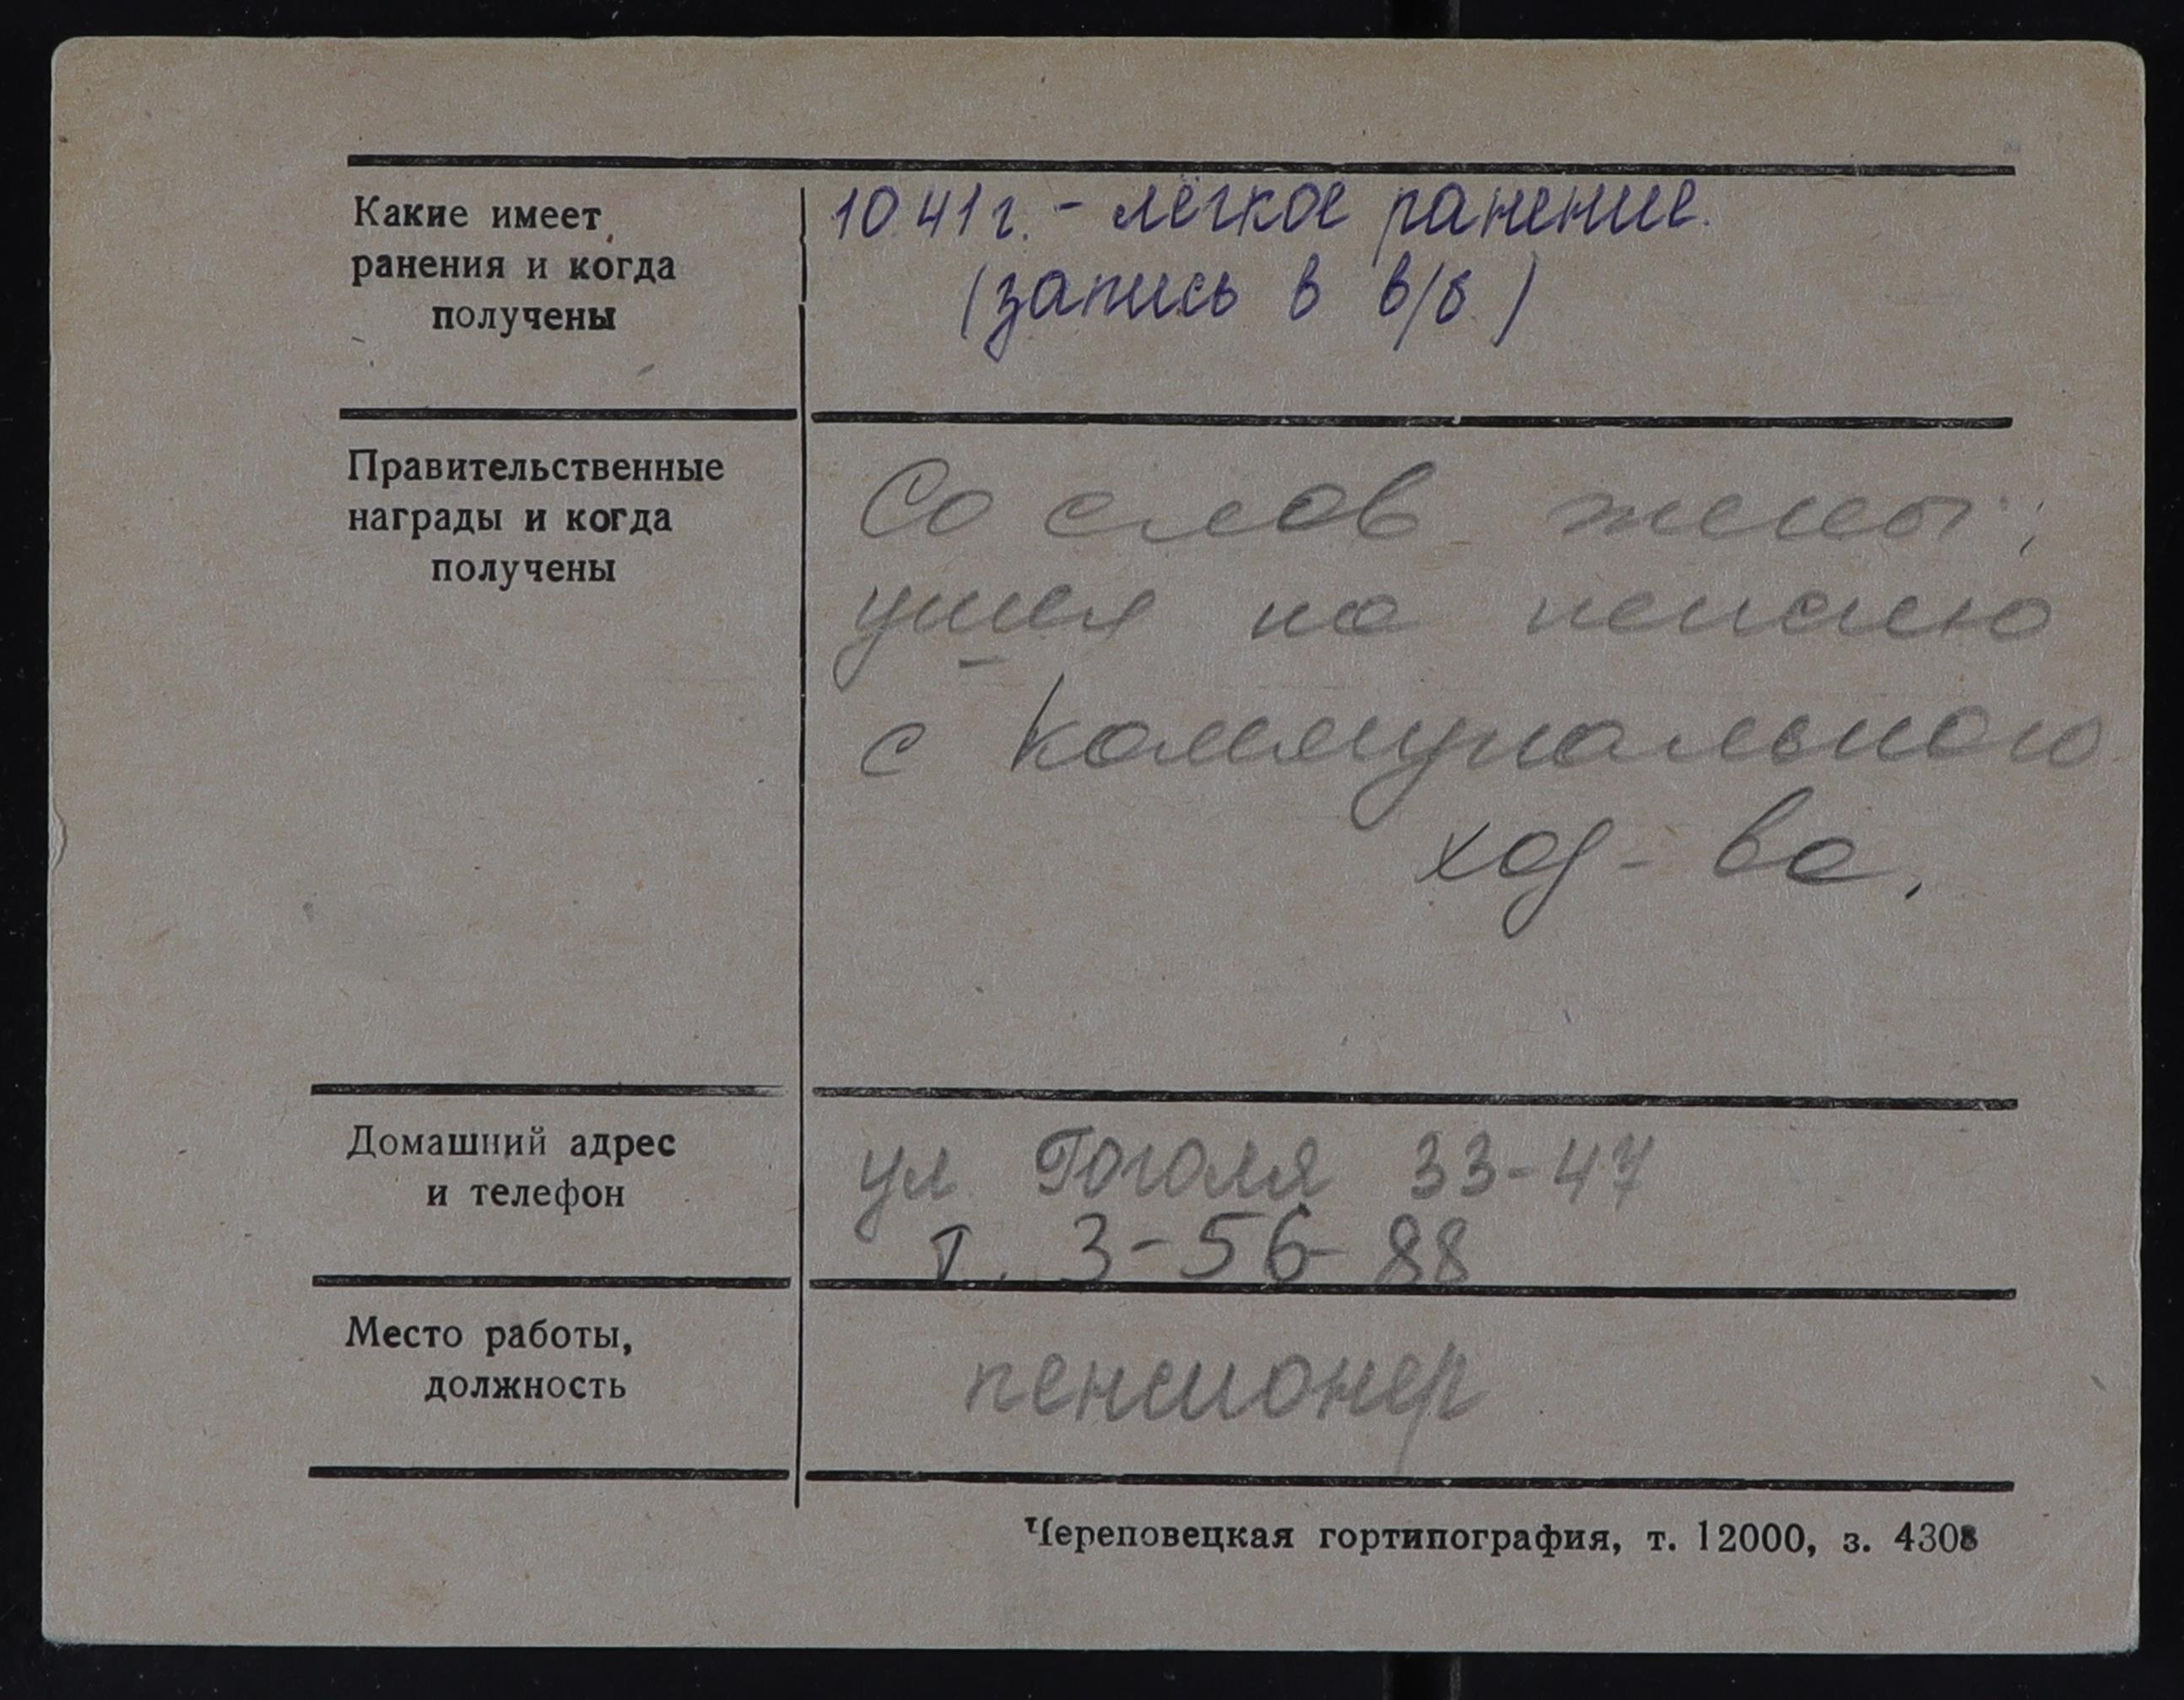 Какие имеет
ранения и когда
получены
10.41 г. - легкое ранение.
(запись в в/б.)
Правительственные
награды и когда
получены
Со слов жены:
ушел на пенсию
с коммунального
хоз-ва.
Домашний адрес
и телефон
ул Гоголя 33-47
т. 3-56-88
Место работы,
должность
пенсионер
Череповецкая гортипография, т. 12000, з. 4308